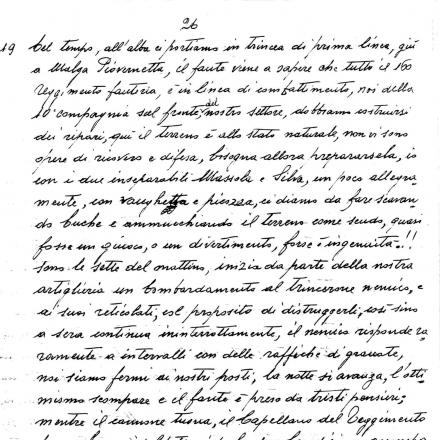 26
19 bel tempo, all'alba ci portiamo in trincea di prima linea, qui
a Malga Piovernetta, il fante viene a sapere che tutto il 160
reggimento fanteria, è in linea di combattimento, noi della
10° compagnia sul fronte del nostro settore, dobbiamo costruirsi
dei ripari, qui il terreno è allo stato naturale, non vi sono
opere di ricovero e difesa, bisogna allora prepararsela, io
con i due inseparabili Massola e Silva, un poco allegra-
mente, con vanghetta e piccozza, ci diamo da fare scavan-
do buche e ammucchiando il terreno come scudo, quasi
fosse un giuoco, o un divertimento, forse è ingenuità..!!
sono le sette del mattino, inizia da parte della nostra
artiglieria un bombardamento al trincerone nemico, e
ai suoi reticolati, col proposito di distruggerli, così sino
a sera continua ininterrottamente, il nemico risponde ra-
ramente a intervalli con delle raffiche di granate,
noi siamo fermi ai nostri posti, la notte si avanza, l'otti-
mismo scompare e il fante è preso da tristi pensieri;
mentre il cannone tuona, il Cappellano del Reggimento